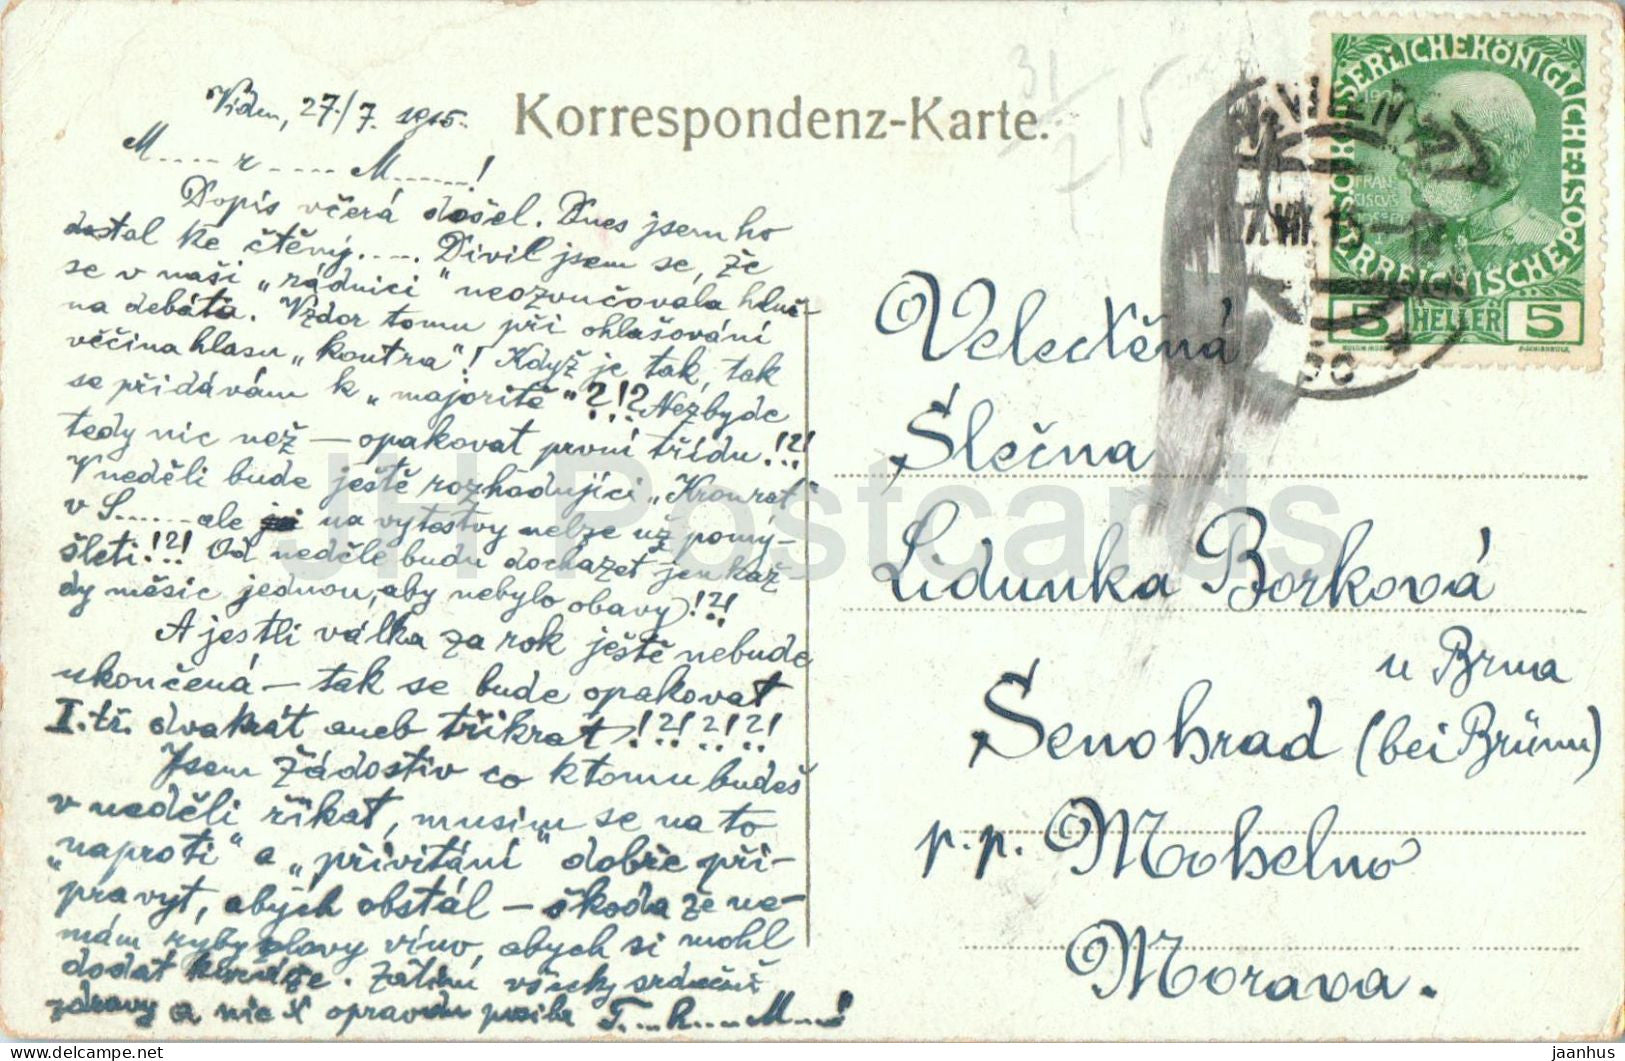 Korrespondenz-Karte.
31/7 15
Vídeň, 27./7. 1915.
M..... r ..... M......!
Dopis včerá došel. Dnes jsem ho
dostal ke čtěný..... Divil jsem se, že
se v naši „rádnici“ neozvučovala hluč-
na debáta. Vzdor tomu při ohlašování
věčina hlasu „kontra“! Když je tak, tak
se přidávám k „majoritě“?!? Nezbyde
tedy nic než — opakovat první třídu!?!
V neděli bude ještě rozhadující „Kronrat“
v S....... ale na vytestvy nelze už pomy-
šleti!?! Od neděle budu docházet jen kaž-
dy měsic jednou, aby nebylo obavy!?!
A jestli válka za rok ještě nebude
ukončená — tak se bude opakovat
I. tř. dvakrát aneb třikrát!?!?!?!
Jsem žádostiv co k tomu budeš
v neděli říkat, musim se na to
„naproti“ a „přivitání“ dobře při-
pravyt, abých obstál — škoda že ne-
mám ryby plavy víno, abych si mohl
dodat kuráže. Zatim všecky srdečně
zdravy a nic opravdu posila T....k....M....!
SERLICHEKÖNIGLICHEÖSTERREICHISCHEPOST
FRAN
CISCVS
IOSEPH
5 HELLER 5
WIEN
7.VII.15
Velectěná
Slečna
Lidunka Borková
u Brna
Senohrad (bei Brünn)
p.p. Mohelno
Morava.
JH Postcards
delcampe.net
jaanhus